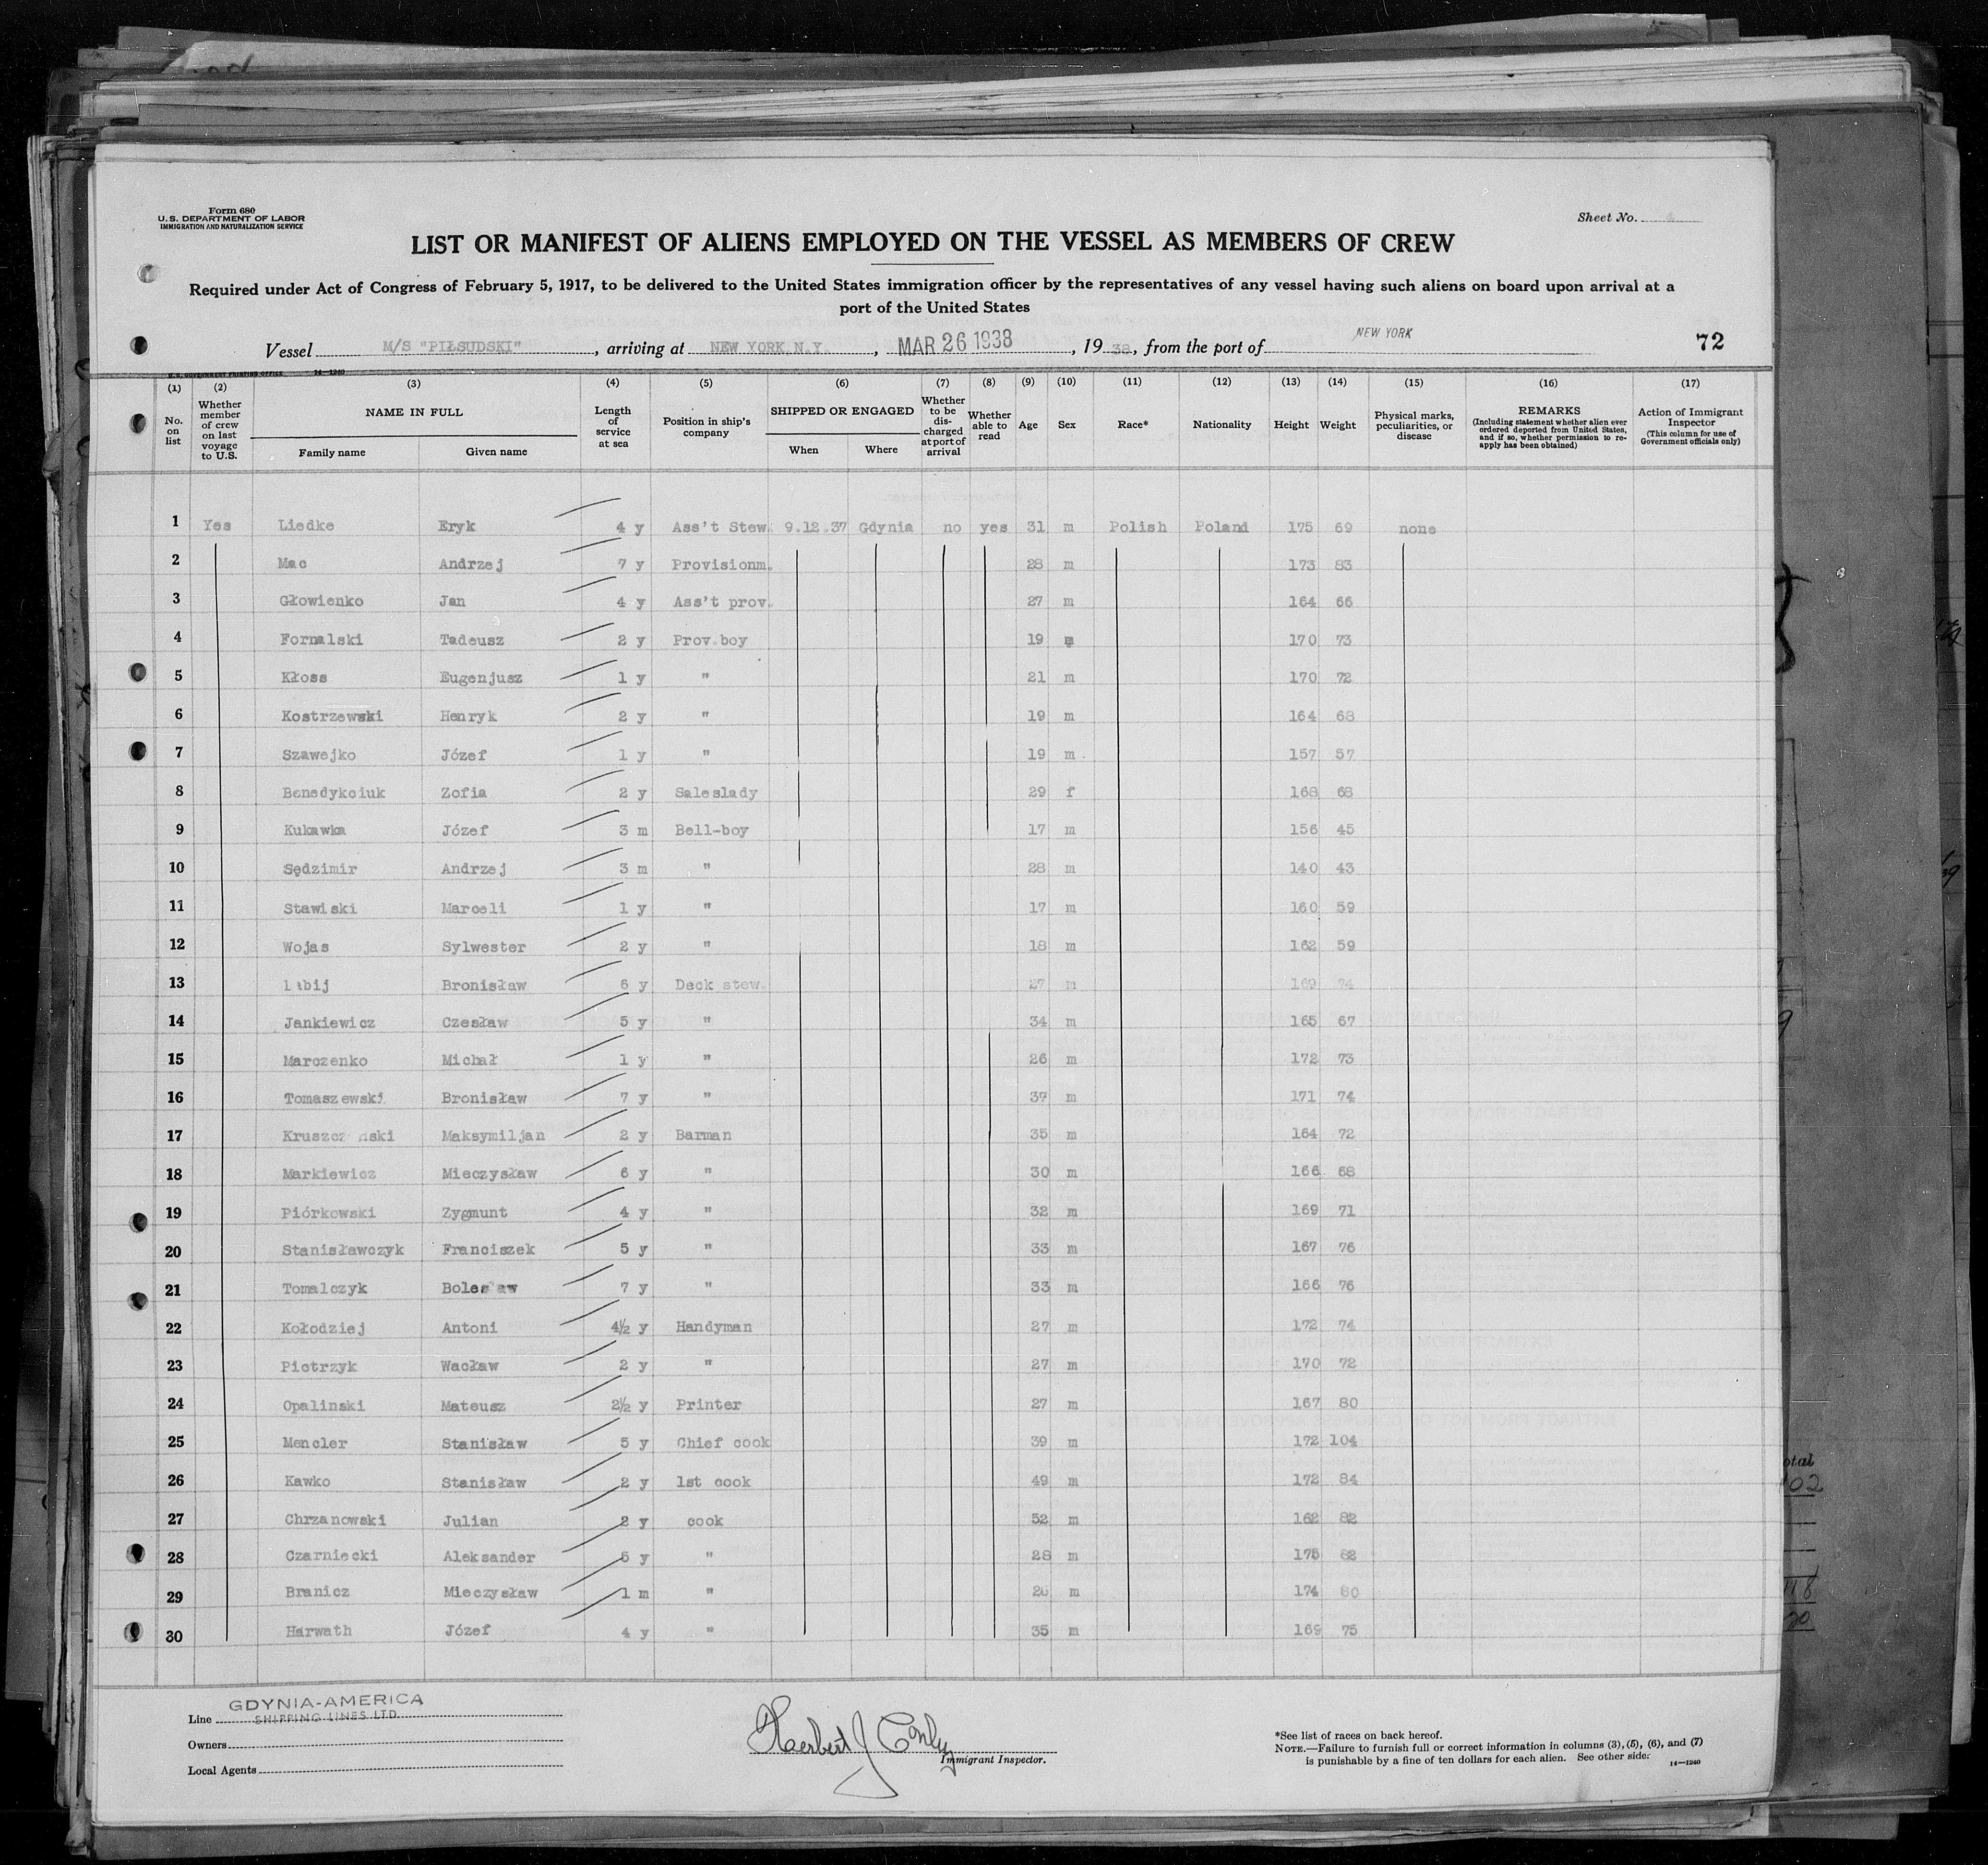 Form 680
U. S. DEPARTMENT OF LABOR
IMMIGRATION AND NATURALIZATION SERVICE
Sheet No.
LIST OR MANIFEST OF ALIENS EMPLOYED ON THE VESSEL AS MEMBERS OF CREW
Required under Act of Congress of February 5, 1917, to be delivered to the United States immigration officer by the representatives of any vessel having such aliens on board upon arrival at a
port of the United States
Vessel M/S "PIŁSUDSKI", arriving at NEW YORK N.Y., MAR 26 1938, 19 38, from the port of NEW YORK 72
U. S. GOVERNMENT PRINTING OFFICE 14—1240
(1) (2) (3) (4) (5) (6) (7) (8) (9) (10) (11) (12) (13) (14) (15) (16) (17)
No. on list
Whether member of crew on last voyage to U.S.
NAME IN FULL
Family name Given name
Length of service at sea
Position in ship's company
SHIPPED OR ENGAGED
When Where
Whether to be discharged at port of arrival
Whether able to read
Age
Sex
Race*
Nationality
Height
Weight
Physical marks, peculiarities, or disease
REMARKS
(Including statement whether alien ever ordered deported from United States, and if so, whether permission to reapply has been obtained)
Action of Immigrant Inspector
(This column for use of Government officials only)
1 Yes Liedke Eryk 4 y Ass't Stew. 9.12.37 Gdynia no yes 31 m Polish Poland 175 69 none
2 Mac Andrzej 7 y Provisionm. 28 m 173 83
3 Głowienko Jan 4 y Ass't prov. 27 m 164 66
4 Fornalski Tadeusz 2 y Prov.boy 19 m 170 73
5 Kłoss Eugenjusz 1 y " 21 m 170 72
6 Kostrzewski Henryk 2 y " 19 m 164 68
7 Szawejko Józef 1 y " 19 m 157 57
8 Benedykciuk Zofia 2 y Saleslady 29 f 168 68
9 Kukawka Józef 3 m Bell-boy 17 m 156 45
10 Sędzimir Andrzej 3 m " 28 m 140 43
11 Stawiski Marceli 1 y " 17 m 160 59
12 Wojas Sylwester 2 y " 18 m 162 59
13 Bronisław 6 y Deck stew. 27 m 169 74
14 Jankiewicz Czesław 5 y " 34 m 165 67
15 Marczenko Michał 1 y " 26 m 172 73
16 Tomaszewski Bronisław 7 y " 37 m 171 74
17 Maksymiljan 2 y Barman 35 m 164 72
18 Markiewicz Mieczysław 6 y " 30 m 166 68
19 Piórkowski Zygmunt 4 y " 32 m 169 71
20 Stanisławczyk Franciszek 5 y " 33 m 167 76
21 Tomalczyk Bolesław 7 y " 33 m 166 76
22 Kołodziej Antoni 4½ y Handyman 27 m 172 74
23 Pietrzyk Wacław 2 y " 27 m 170 72
24 Opalinski Mateusz 2½ y Printer 27 m 167 80
25 Mencler Stanisław 5 y Chief cook 39 m 172 104
26 Kawko Stanisław 2 y 1st cook 49 m 172 84
27 Chrzanowski Julian 2 y cook 52 m 162 82
28 Czarniecki Aleksander 5 y " 28 m 175 82
29 Branicz Mieczysław 1 m " 26 m 174 80
30 Harwath Józef 4 y " 35 m 169 75
Line GDYNIA-AMERICA
SHIPPING LINES LTD.
Owners
Local Agents
Herbert J Conly
Immigrant Inspector.
*See list of races on back hereof.
NOTE.—Failure to furnish full or correct information in columns (3), (5), (6), and (7)
is punishable by a fine of ten dollars for each alien. See other side.
14—1240